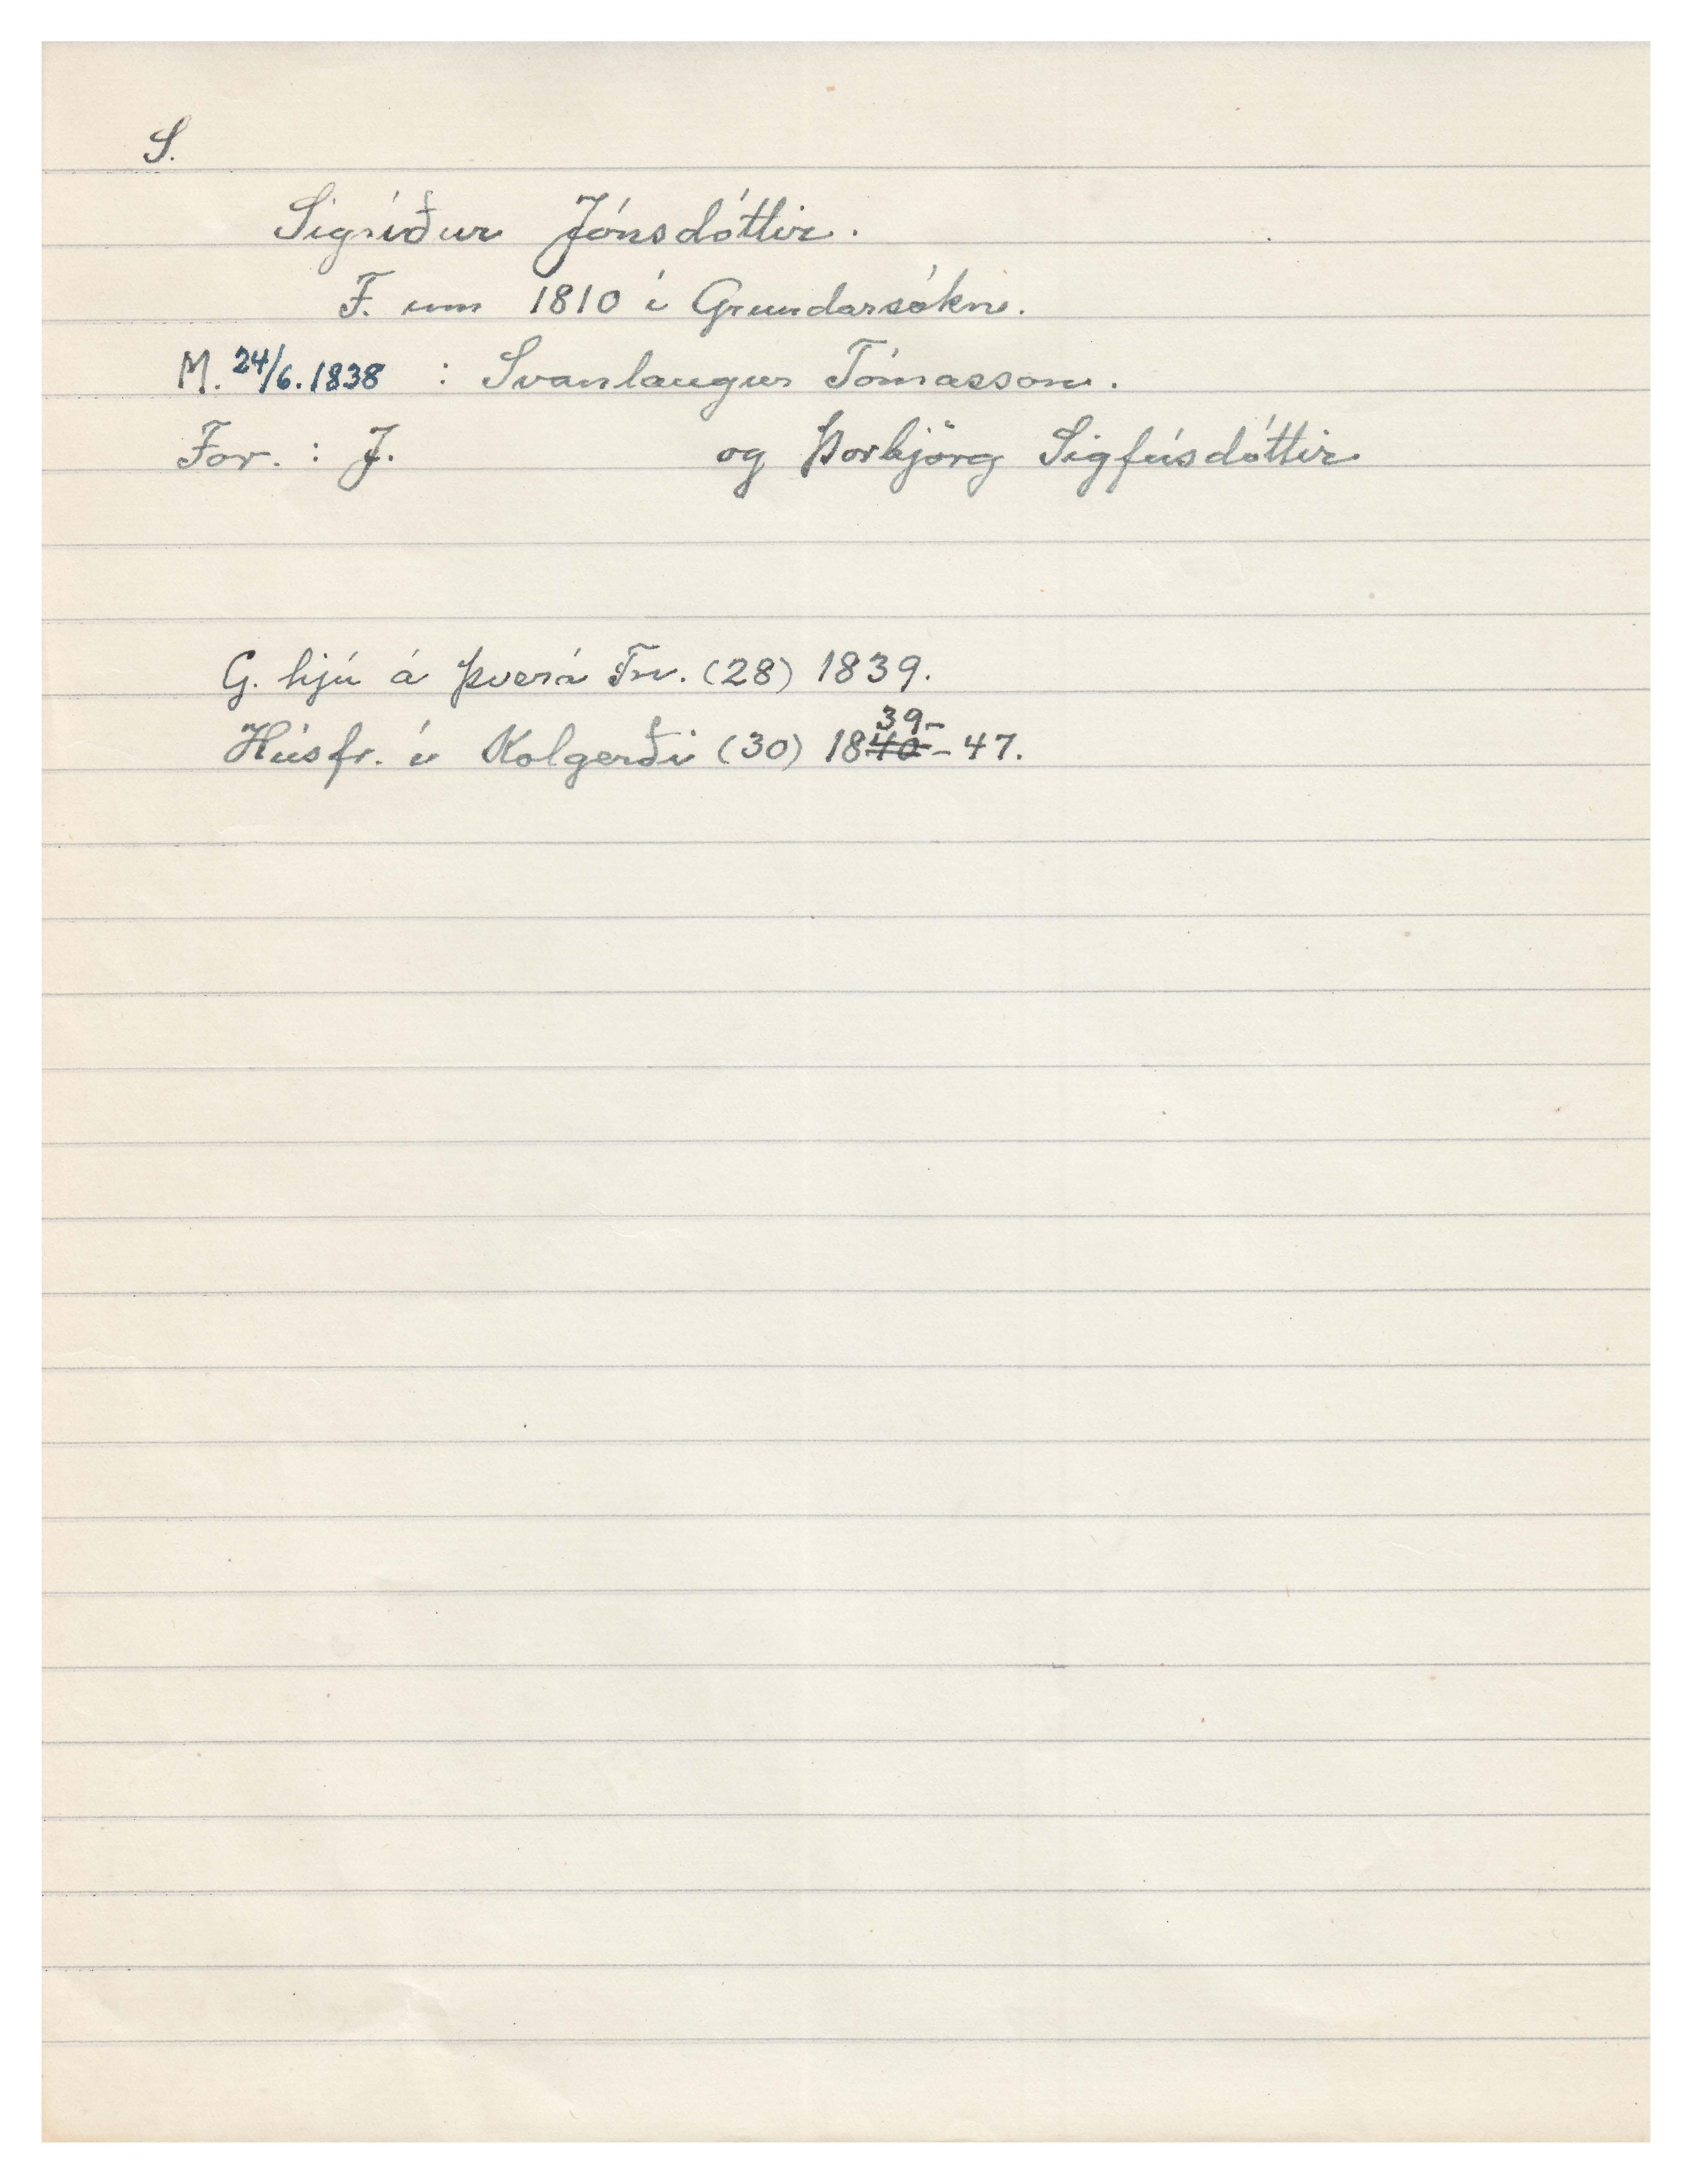 S.
Sigríður Jónsdóttir.
F. um 1810 í Grundarsókn.
M. 24/6. 1838 : Svanlaugur Tómasson.
For. : J. og Þorbjörg Sigfúsdóttir
G. hjú á Þverá Fnv. (28) 1839.
39-
Húsfr. í Kolgerði (30) 1840-47.